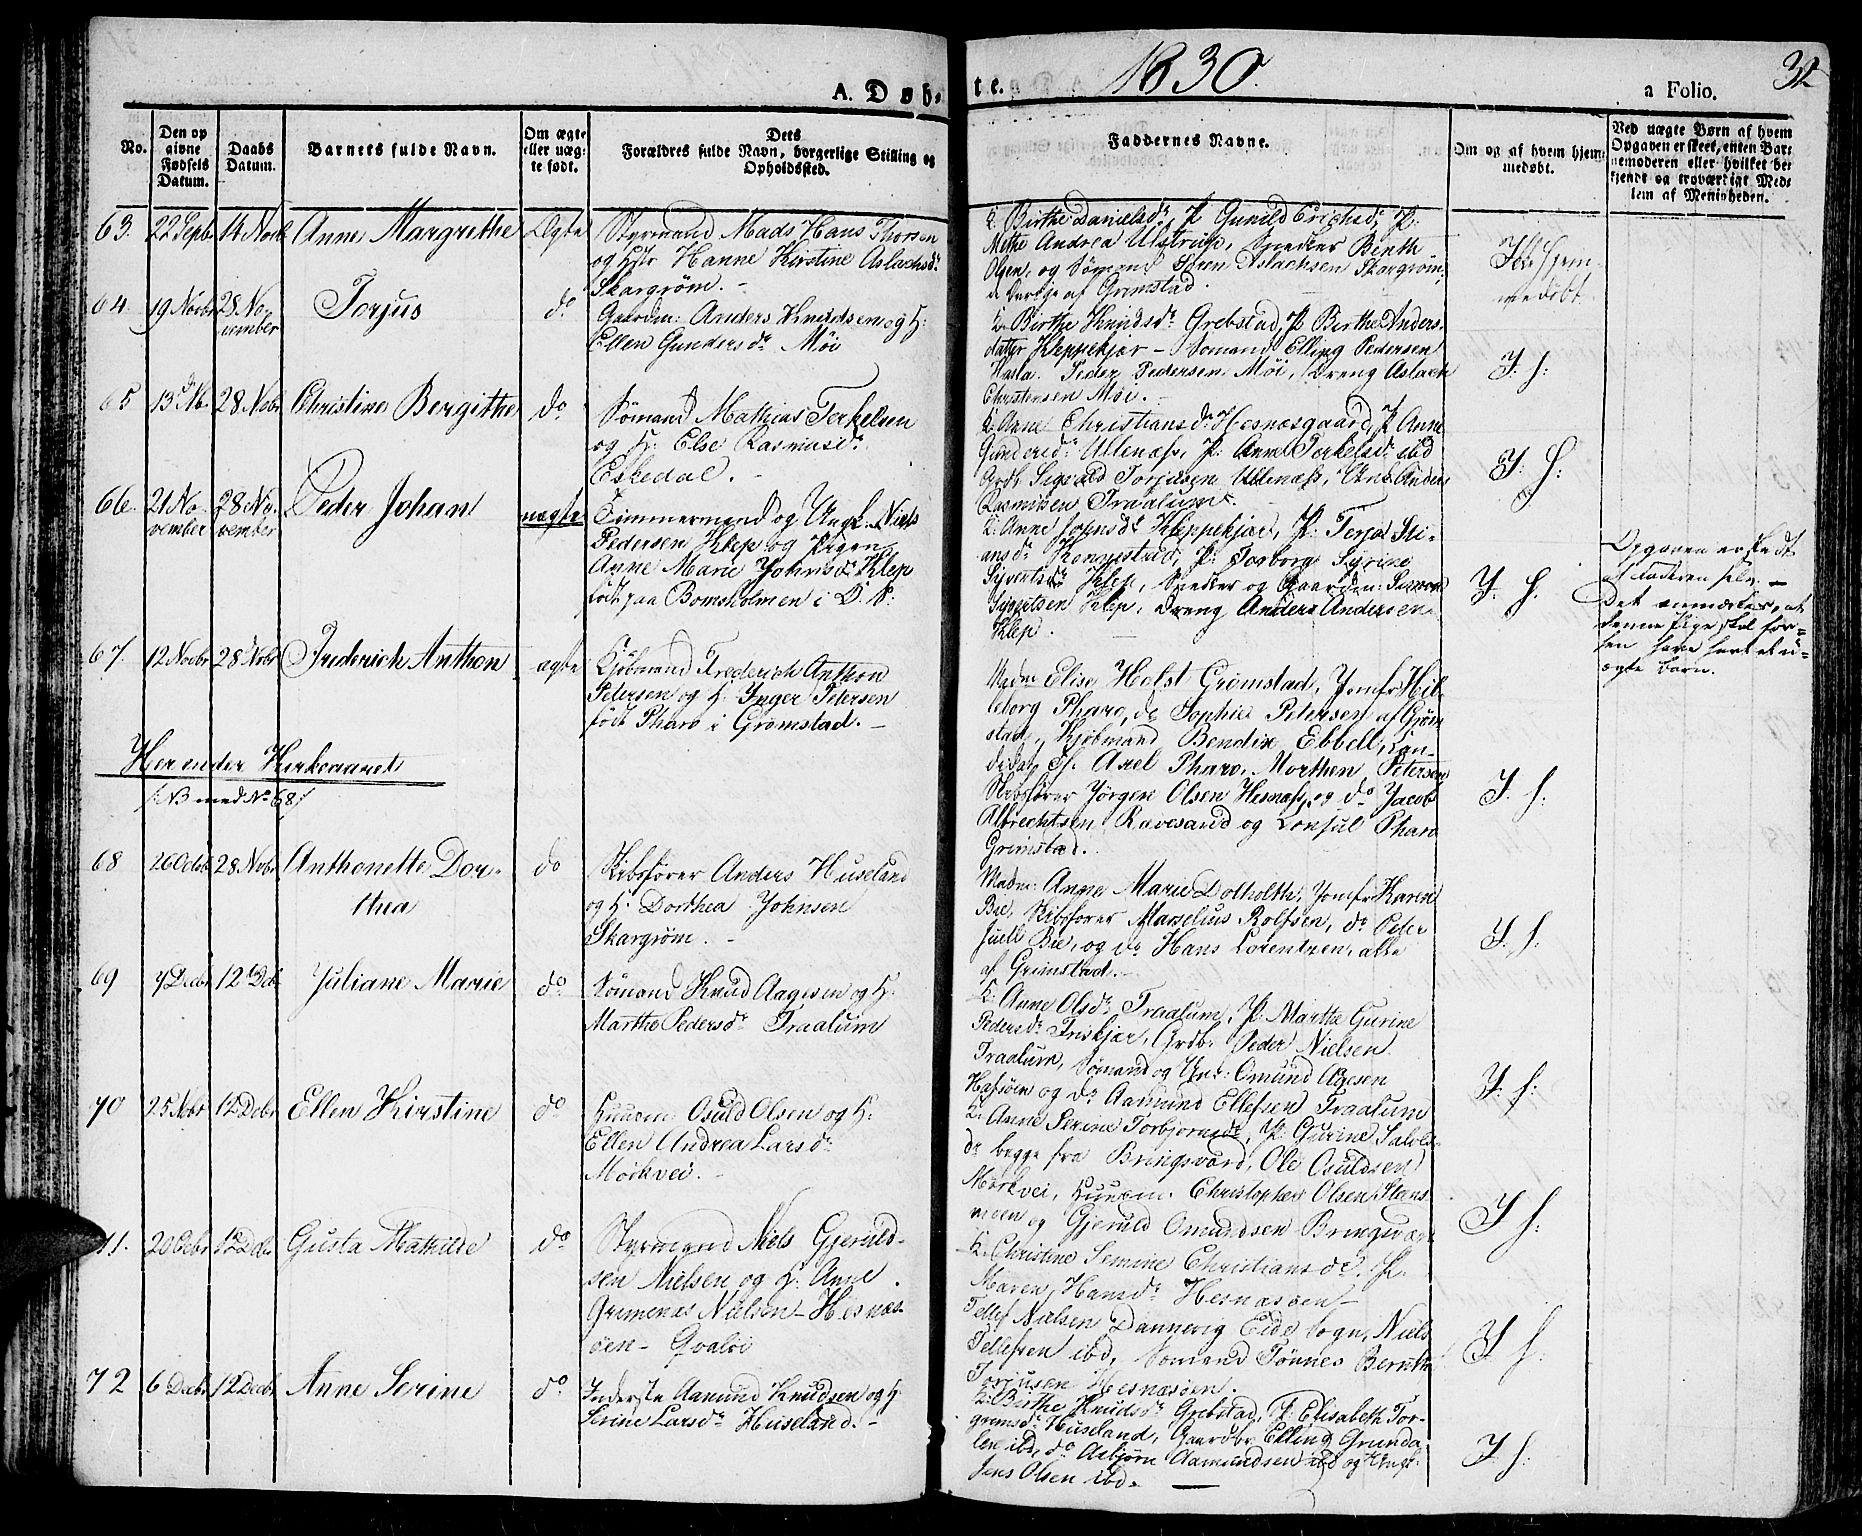 1830.
32
A. Døb-
te.
a Folio.
No.
Den op
givne
Fødsels
Datum.
Daabs
Datum.
Barnets fulde Navn.
Om ægte
eller uæg-
te født.
Dets
Forældres fulde Navn, borgerlige Stilling og
Opholdssted.
Faddernes Navne.
Om og af hvem hjem-
medøbt.
Ved uægte Børn af hvem
Opgaven er skeet, enten Bar-
nemoderen eller hvilket be-
kjendt og troværdigt Med-
lem af Menigheden.
63.
22 Septbr
14 Novbr
Anne Margrethe
Ægte
Styrmand Mads Hans Thorsen
og Hstr Hanne Kirstine Aslachsdr
Skargrøm. -
K. Birthe Danielsdr, P. Gunild Erichsdr, P:
Methe Andrea Ulstrup, Snedker Benth
Olsen, og Sømand Søren Aslachsen Skargrøm,
de Øvrige af Grimstad.
Ikke Hjem-
medøbt.
64.
19 Novbr
28 No-
vember
Torjus
do
Gaardm: Anders Knudsen og H:
Ellen Gundersdr Møi
K. Birthe Knudsdr Grebstad, P. Birthe Anders-
datter Kleppekjær - Sømand Elling Pedersen
Hasla. Peder Pedersen Møi, Dreng Aslach
Christensen Møi. -
I. H:
65
13 Nb
28 Nobr
Christine Bergithe
do
Sømand Mathias Terkelsen
og H: Else Rasmusdr
Eskedal. -
K: Anne Christiansdr Hesnæsgaard, P. Anne
Gundersdr Ullenæss, P: Anne Terkelsdr ibd
Grdb Sigvald Torjusen Ullenæss, Anders
Rasmusen Traalum.
I. H:
66.
21 No-
vember
28 No-
vember
Peder Johan
uægte
Timmermand og Ungk. Niels
Pedersen Klep og Pigen
Anne Marie Johnsdr Klep
født paa Bomsholmen i D. P:
K: Anne Johnsdr Kleppekjær, P: Terje Sti-
ansdr Kongestad, P: Torborg Syrine
Sivertsdr Klep, Snedker og Gaardm: Simon
Syvertsen Klep, Dreng Anders Andersen
Klep. -
I. H:
Opgaven er skedt
af Faderen selv. -
Det anmærkes, at
denne Pige skal for-
hen have havt et u-
ægte barn.
67.
12 Novbr
28 Nobr
Frederich Anthon
ægte
Kjøbmand Frederich Anthon
Petersen og H. Inger Petersen
født Pharo i Grømstad. -
Madm: Elise Holst Grømstad, Jomfr Hil-
leborg Pharo, do Sophie Petersen af Grøm
stad, Kjøbmand Bendix Ebbell, Kan-
didat Axel Pharo, Morthen Petersen
Skibsfører Jørgen Olsen Hesnæss, og do Jacob
Albrechtsen Rævesand og Consul Pharo
Grimstad.
I. H:
Her ender Kirkeaaret
/: NB med No 68 /
68
26 Octobr
28 Nobr
Anthonette Dor-
thea
do
Skibsfører Anders Huseland
og H. Dorthea Johnsen
Skargrøm. -
Madm: Anne Marie Dotholth, Jomfr Karen
Bie, Skibsfører Marselius Rolfsen, do Peter
Juell Bie, og do Hans Lorentzen, alle
af Grimstad. -
I. H:
69
7 Decbr
12 Debr
Juliane Marie
do
Sømand Knud Aagesen og H:
Marthe Pedersdr Traalum
K: Anne Olsdr Traalum, P: Marthe Gurine
Pedersdr Friskjær, Grdb: Peder Nielsen
Traalum, Sømand og Unk: Omund Agesen
Hafsøen og do Aamund Ellefsen Traalum
I. H:
70
25 Nobr
12 Debr
Ellen Kirstine
do
Huusm: Osuld Olsen og H:
Ellen Andrea Larsdr
Mørkvei. -
K: Anne Serine Torbjørnsdr, P: Gurine Salvels
dr begge fra Bringsværd, Ole Osuldsen
Mørkvei, Huusm: Christopher Olsen Stens
moen og Gjeruld Omundsen Bringsværd
I. H:
71.
20 Octbr
12 Debr
Gusta Mathilde
do
Styrmand Niels Gjeruld-
sen Nielsen og H: Anne
Grimenas Nielsen - Hesnæs-
øen - Qvaløi
K: Christine Semine Christiansdr. P.
Maren Hansdr Hesnæsøen -
Tellef Nielsen Dannevig Eide Sogn, Niels
Tellefsen ibd, Sømand Tønnes Bernth
Torjusen Hesnæsøen.
I. H:
72
6 Decbr
12 Decbr
Anne Serine
do
Inderste Aamund Knudsen og H:
Serine Larsdr Huseland. -
K: Birthe Knudsdr Grebstad, P: Elisabeth Tor-
grimsdr Huseland, Gaardbr Elling Grunda-
len ibd, do Asbjørn Aamundsen ibd og Ungk:
Jens Olsen ibd. -
I. H: